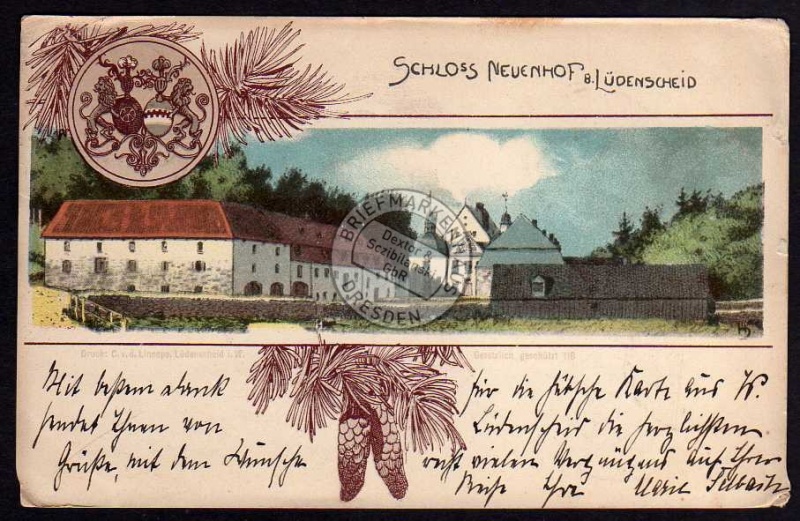 SCHLOSS NEUENHOF B. LÜDENSCHEID
BRIEFMARKEN
Dextor &
GbR
DRESDEN
Druck: C. v. d. Linnepe, Lüdenscheid i. W.
Gesetzlich geschützt 116
Mit bestem Dank
sendet Ihnen von
Grüße, mit dem Wunsche
für die hübsche Karte aus W.
Lüdenscheid die herzlichsten
recht vielen Vergnügens auf Ihrer
Reise Ihre Marie